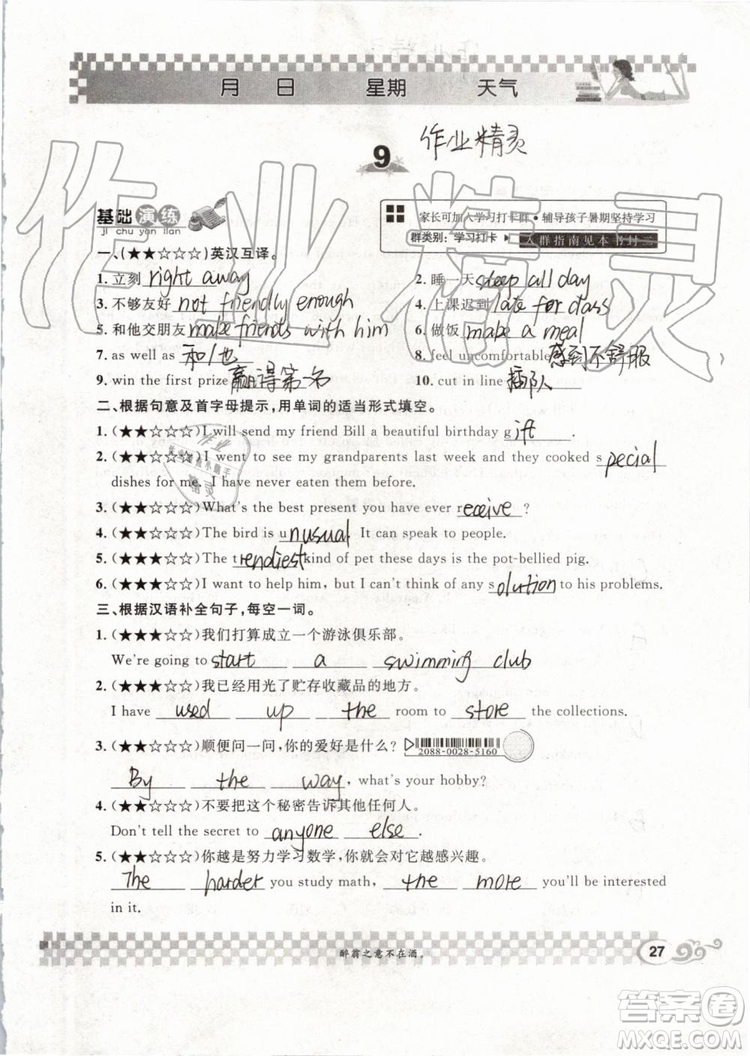 月 日 星期 天气
9 作业精灵
基础演练
ji chu yan lian
家长可加入学习打卡群·辅导孩子暑期坚持学习
群类别：学习打卡 入群指南见本书封二
一、(★★☆☆☆)英汉互译。
1. 立刻 right away 2. 睡一天 sleep all day
3. 不够友好 not friendly enough 4. 上课迟到 late for class
5. 和他交朋友 make friends with him 6. 做饭 make a meal
7. as well as 和/也 8. feel uncomfortable 感到不舒服
9. win the first prize 赢得第一名 10. cut in line 插队
二、根据句意及首字母提示，用单词的适当形式填空。
1. (★★☆☆☆)I will send my friend Bill a beautiful birthday gift.
2. (★★☆☆☆)I went to see my grandparents last week and they cooked special
dishes for me. I have never eaten them before.
3. (★★☆☆☆)What's the best present you have ever receive?
4. (★★☆☆☆)The bird is unusual. It can speak to people.
5. (★★☆☆☆)The trendiest kind of pet these days is the pot-bellied pig.
6. (★★☆☆☆)I want to help him, but I can't think of any solution to his problems.
三、根据汉语补全句子，每空一词。
1. (★★☆☆☆)我们打算成立一个游泳俱乐部。
We're going to start a swimming club
2. (★★☆☆☆)我已经用光了贮存收藏品的地方。
I have used up the room to store the collections.
3. (★★☆☆☆)顺便问一问，你的爱好是什么？ 2088-0028-5160
By the way, what's your hobby?
4. (★★☆☆☆)不要把这个秘密告诉其他任何人。
Don't tell the secret to anyone else.
5. (★★☆☆☆)你越是努力学习数学，你就会对它越感兴趣。
The harder you study math, the more you'll be interested
in it.
醉翁之意不在酒。 27
作业精灵
答案圈
MXQE.COM